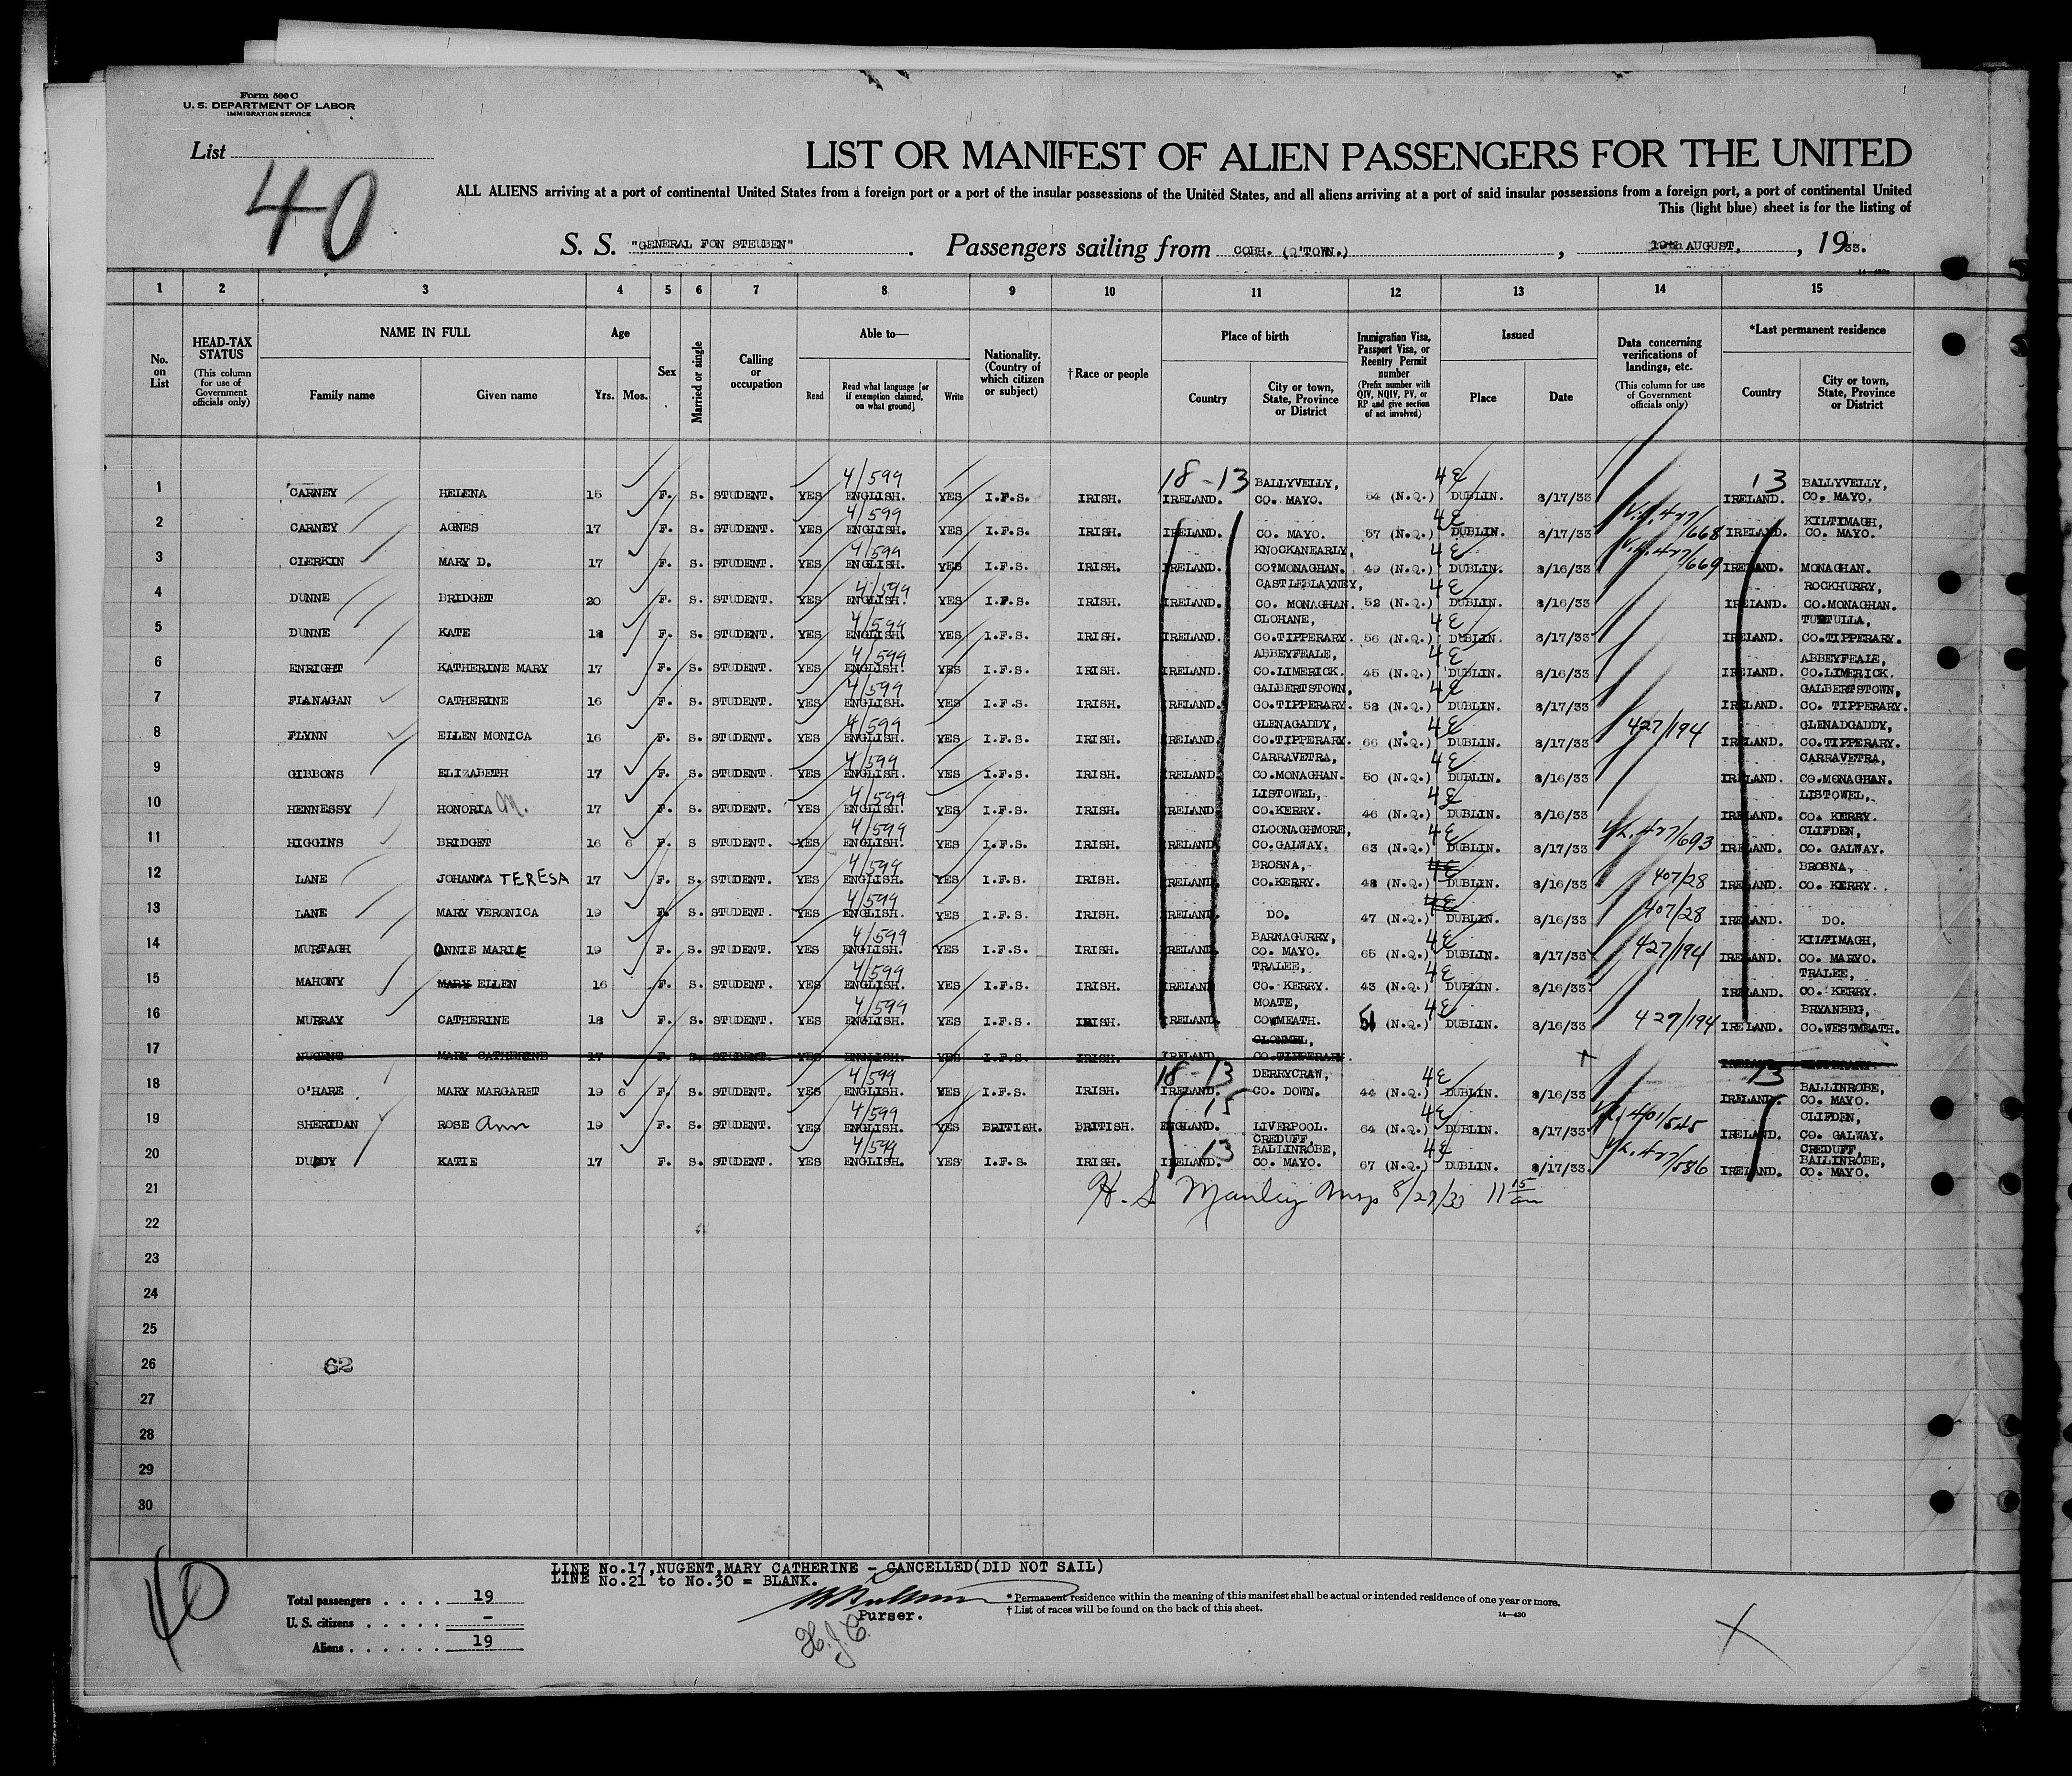 Form 500 C
U. S. DEPARTMENT OF LABOR
IMMIGRATION SERVICE
List
40
LIST OR MANIFEST OF ALIEN PASSENGERS FOR THE UNITED
ALL ALIENS arriving at a port of continental United States from a foreign port or a port of the insular possessions of the United States, and all aliens arriving at a port of said insular possessions from a foreign port, a port of continental United
This (light blue) sheet is for the listing of
S. S. "GENERAL FON STEUBEN" . Passengers sailing from COBH. (Q'TOWN.) , 19th AUGUST. , 1933.
14—430a
1 2 3 4 5 6 7 8 9 10 11 12 13 14 15
No. on List
HEAD-TAX STATUS (This column for use of Government officials only)
NAME IN FULL
Family name Given name
Age
Yrs. Mos.
Sex
Married or single
Calling or occupation
Able to—
Read
Read what language [or if exemption claimed, on what ground]
Write
Nationality. (Country of which citizen or subject)
†Race or people
Place of birth
Country
City or town, State, Province or District
Immigration Visa, Passport Visa, or Reentry Permit number (Prefix number with QIV, NQIV, PV, or RP and give section of act involved)
Issued
Place Date
Data concerning verifications of landings, etc. (This column for use of Government officials only)
*Last permanent residence
Country
City or town, State, Province or District
1 CARNEY HELENA 15 F. S. STUDENT. YES 4/599 ENGLISH. YES I.F.S. IRISH. 18-13 IRELAND. BALLYVELLY, CO. MAYO. 54 (N.Q.) 4E DUBLIN. 8/17/33 13 IRELAND. BALLYVELLY, CO. MAYO.
2 CARNEY AGNES 17 F. S. STUDENT. YES 4/599 ENGLISH. YES I.F.S. IRISH. IRELAND. CO. MAYO. 57 (N.Q.) 4E DUBLIN. 8/17/33 427/668 IRELAND. KILTIMAGH, CO. MAYO.
3 CLERKIN MARY D. 17 F. S. STUDENT. YES 4/599 ENGLISH. YES I.F.S. IRISH. IRELAND. KNOCKANEARLY, CO?MONAGHAN. 49 (N.Q.) 4E DUBLIN. 8/16/33 427/669 IRELAND. MONAGHAN.
4 DUNNE BRIDGET 20 F. S. STUDENT. YES 4/599 ENGLISH. YES I.F.S. IRISH. IRELAND. CASTLEBLAYNEY, CO. MONAGHAN. 52 (N.Q.) 4E DUBLIN. 8/16/33 IRELAND. ROCKHURRY, CO.MONAGHAN.
5 DUNNE KATE 18 F. S. STUDENT. YES 4/599 ENGLISH. YES I.F.S. IRISH. IRELAND. CLOHANE, CO.TIPPERARY. 56 (N.Q.) 4E DUBLIN. 8/17/33 IRELAND. TURTULLA, CO.TIPPERARY.
6 ENRIGHT KATHERINE MARY 17 F. S. STUDENT. YES 4/599 ENGLISH. YES I.F.S. IRISH. IRELAND. ABBEYFEALE, CO.LIMERICK. 45 (N.Q.) 4E DUBLIN. 8/16/33 IRELAND. ABBEYFEALE, CO.LIMERICK.
7 FLANAGAN CATHERINE 16 F. S. STUDENT. YES 4/599 ENGLISH. YES I.F.S. IRISH. IRELAND. GALBERTSTOWN, CO.TIPPERARY. 58 (N.Q.) 4E DUBLIN. 8/17/33 IRELAND. GALBERTSTOWN, CO. TIPPERARY.
8 FLYNN EILEN MONICA 16 F. S. STUDENT. YES 4/599 ENGLISH. YES I.F.S. IRISH. IRELAND. GLENAGADDY, CO.TIPPERARY. 66 (N.Q.) 4E DUBLIN. 8/17/33 427/194 IRELAND. GLENADGADDY, CO.TIPPERARY.
9 GIBBONS ELIZABETH 17 F. S. STUDENT. YES 4/599 ENGLISH. YES I.F.S. IRISH. IRELAND CARRAVETRA, CO.MONAGHAN. 50 (N.Q.) 4E DUBLIN. 8/16/33 IRELAND. CARRAVETRA, CO.MONAGHAN.
10 HENNESSY HONORIA M. 17 F. S. STUDENT. YES 4/599 ENGLISH. YES I.F.S. IRISH. IRELAND LISTOWEL, CO.KERRY. 46 (N.Q.) 4E DUBLIN. 8/16/33 IRELAND. LISTOWEL, CO. KERRY.
11 HIGGINS BRIDGET 16 6 F. S STUDENT. YES 4/599 ENGLISH. YES I.F.S. IRISH. IRELAND CLOONAGHMORE, CO.GALWAY. 63 (N.Q.) 4E DUBLIN. 8/17/33 427/693 IRELAND. CLIFDEN, CO. GALWAY.
12 LANE JOHANNA TERESA 17 F. S. STUDENT. YES 4/599 ENGLISH. YES I.F.S. IRISH. IRELAND BROSNA, CO.KERRY. 48 (N.Q.) 4E DUBLIN. 8/16/33 407/28 IRELAND. BROSNA, CO. KERRY.
13 LANE MARY VERONICA 19 F. S. STUDENT. YES 4/599 ENGLISH. YES I.F.S. IRISH. IRELAND DO. 47 (N.Q.) 4E DUBLIN. 8/16/33 407/28 IRELAND. DO.
14 MURTAGH ANNIE MARIE 19 F. S. STUDENT. YES 4/599 ENGLISH. YES I.F.S. IRISH. IRELAND BARNAGURRY, CO. MAYO. 65 (N.Q.) 4E DUBLIN. 8/17/33 427/194 IRELAND. KILTIMAGH, CO. MARYO.
15 MAHONY MARY EILEN 16 F. S. STUDENT. YES 4/599 ENGLISH. YES I.F.S. IRISH. IRELAND TRALEE, CO. KERRY. 43 (N.Q.) 4E DUBLIN. 8/16/33 IRELAND. TRALEE, CO. KERRY.
16 MURRAY CATHERINE 18 F. S. STUDENT. YES 4/599 ENGLISH. YES I.F.S. IRISH. IRELAND. MOATE, COWMEATH. 51 (N.Q.) 4E DUBLIN. 8/16/33 427/194 IRELAND. BRYANBEG, CO.WESTMEATH.
17 NUGENT MARY CATHERINE 17 F. S. STUDENT. YES ENGLISH. YES I.F.S. IRISH. IRELAND CLONMEL, CO.TIPPERARY IRELAND
18 O'HARE MARY MARGARET 19 6 F. S. STUDENT. YES 4/599 ENGLISH. YES I.F.S. IRISH. 18-13 IRELAND. DERRYCRAW, CO. DOWN. 44 (N.Q.) 4E DUBLIN. 8/16/33 13 IRELAND. BALLINROBE, CO. MAYO.
19 SHERIDAN ROSE Ann 19 F. S. STUDENT. YES 4/599 ENGLISH. YES BRITISH. BRITISH. 15 ENGLAND. LIVERPOOL. 64 (N.Q.) 4E DUBLIN. 8/17/33 401/545 IRELAND. CLIFDEN, CO. GALWAY.
20 DUDDY KATIE 17 F. S. STUDENT. YES 4/599 ENGLISH. YES I.F.S. IRISH. 13 IRELAND. CREDUFF, BALLINROBE, CO. MAYO. 67 (N.Q.) 4E DUBLIN. 8/17/33 427/586 IRELAND. CREDUFF, BALLINROBE, CO. MAYO.
21 H. S Manley Insp 8/27/33 11 15 am
22
23
24
25
26 62
27
28
29
30
LINE No.17,NUGENT,MARY CATHERINE - CANCELLED(DID NOT SAIL)
LINE No.21 to No.30 = BLANK.
40
Total passengers . . . . 19
U. S. citizens . . . . . –
Aliens . . . . . . 19
Purser.
H.J.C.
* Permanent residence within the meaning of this manifest shall be actual or intended residence of one year or more.
† List of races will be found on the back of this sheet.
14—430
X